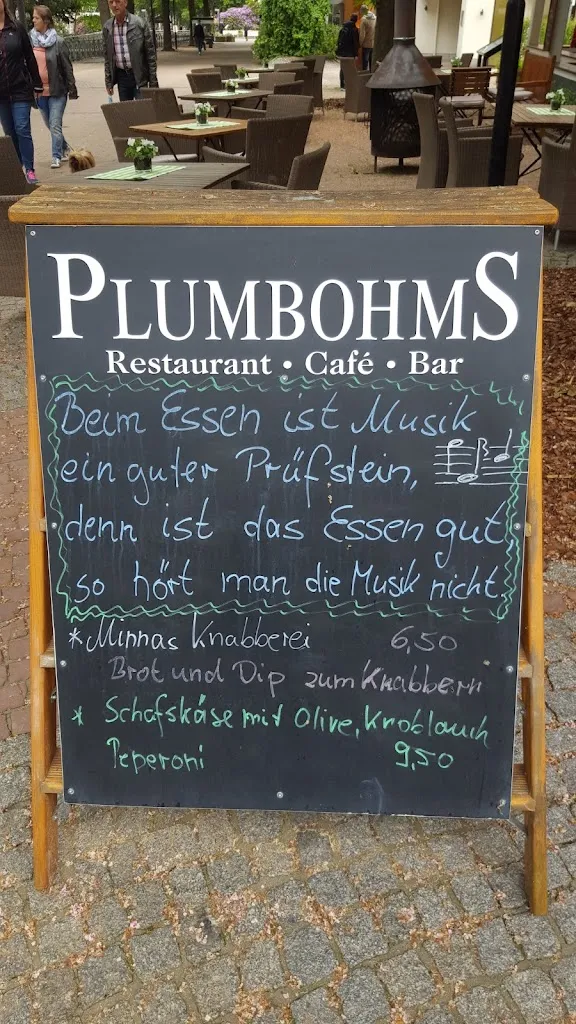 PLUMBOHMS
Restaurant • Café • Bar
Beim Essen ist Musik
ein guter Prüfstein,
denn ist das Essen gut,
so hört man die Musik nicht.
*Minnas Knabberei 6,50
Brot und Dip zum Knabbern
* Schafskäse mit Olive, Knoblauch
Peperoni 9,50